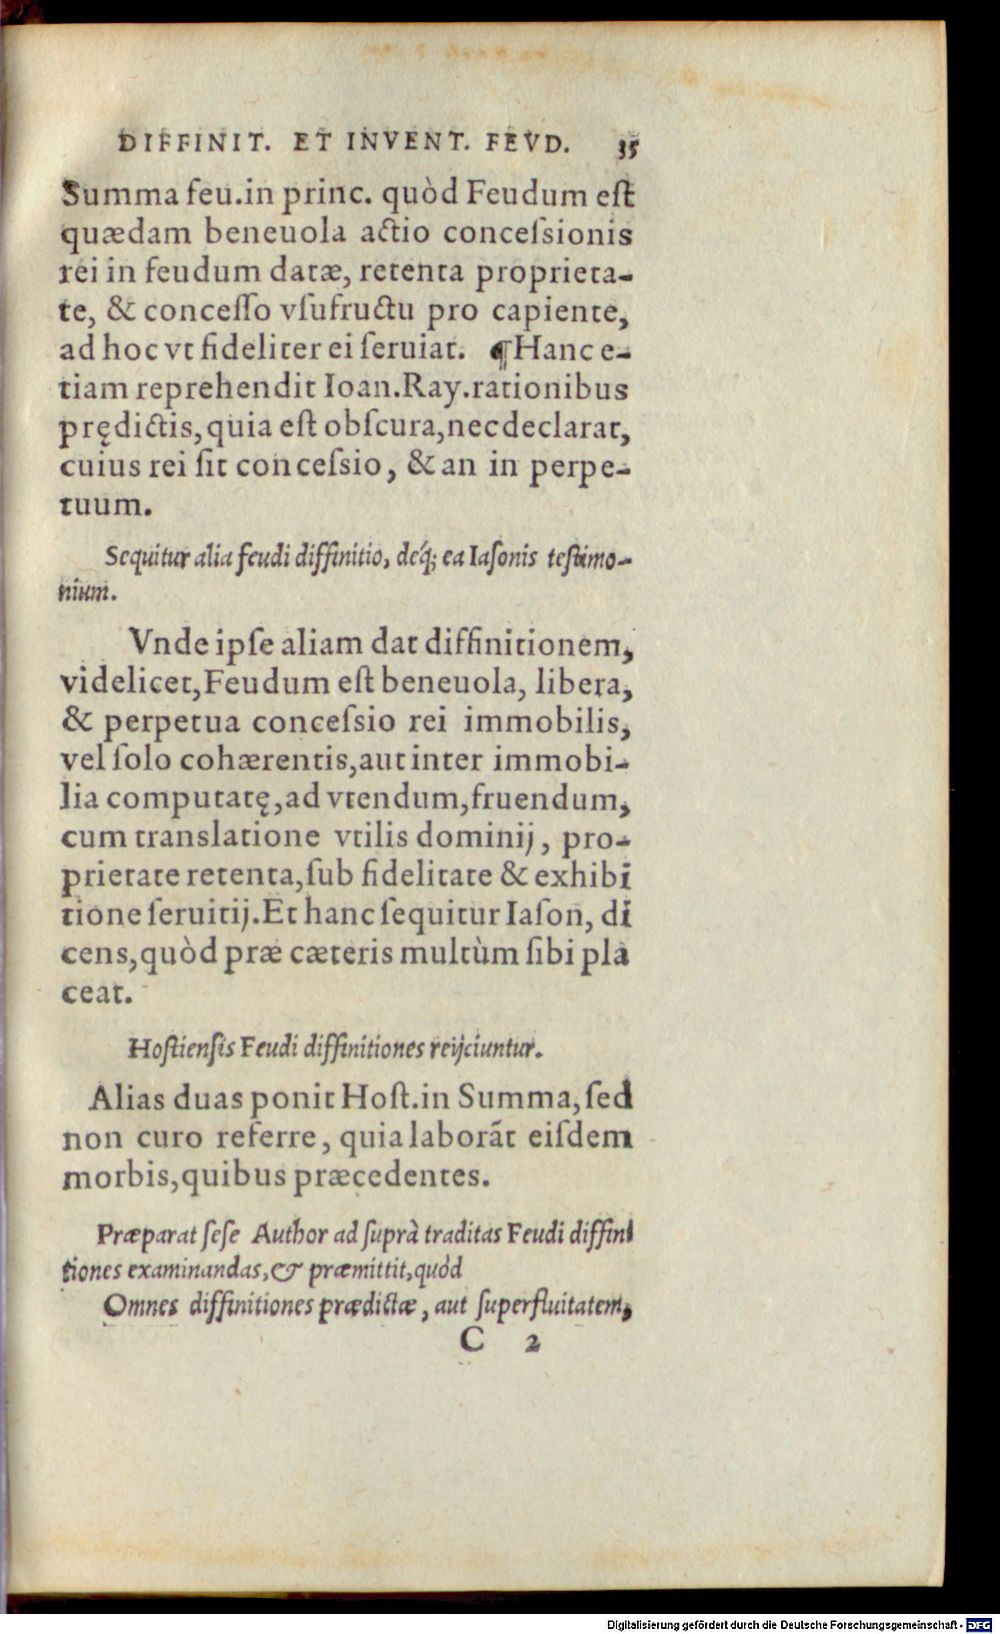 DIFFINIT. ET INVENT. FEVD. 35
Summa feu.in princ. quòd Feudum eſt
quædam beneuola actio conceſsionis
rei in feudum datæ, retenta proprieta-
te, & conceſſo vſufructu pro capiente,
ad hoc vt fideliter ei ſeruiat. ¶Hanc e-
tiam reprehendit Ioan.Ray.rationibus
prędictis,quia eſt obſcura,nec declarat,
cuius rei ſit conceſsio, & an in perpe-
tuum.
Sequitur alia feudi diffinitio, deq́; ea Iaſonis teſtimo-
nium.
Vnde ipſe aliam dat diffinitionem,
videlicet,Feudum eſt beneuola, libera,
& perpetua conceſsio rei immobilis,
vel ſolo cohærentis,aut inter immobi-
lia computatę,ad vtendum,fruendum,
cum translatione vtilis dominij, pro-
prietate retenta,ſub fidelitate & exhibi
tione ſeruitij.Et hanc ſequitur Iaſon, di
cens,quòd præ cæteris multùm ſibi pla
ceat.
Hoſtienſis Feudi diffinitiones reijciuntur.
Alias duas ponit Hoſt.in Summa,ſed
non curo referre, quia laborāt eiſdem
morbis,quibus præcedentes.
Præparat ſeſe Author ad ſuprà traditas Feudi diffini
tiones examinandas,& præmittit,quòd
Omnes diffinitiones prædictæ, aut ſuperfluitatem,
C 2
Digitalisierung gefördert durch die Deutsche Forschungsgemeinschaft - DFG